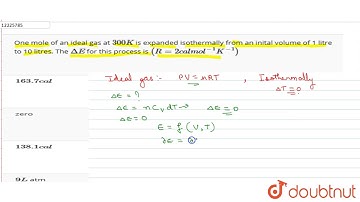 12225785
One mole of an ideal gas at 300K is expanded isothermally from an inital volume of 1 litre
to 10 litres. The ΔE for this process is (R = 2calmol⁻¹K⁻¹)
163.7cal
zero
138.1cal
9L atm
Ideal gas :- PV = nRT , Isothermally
ΔT = 0
ΔE = ?
ΔE = nCvdT → ΔE = 0
ΔE = 0
E = f (V, T)
∂E =
doubtnut